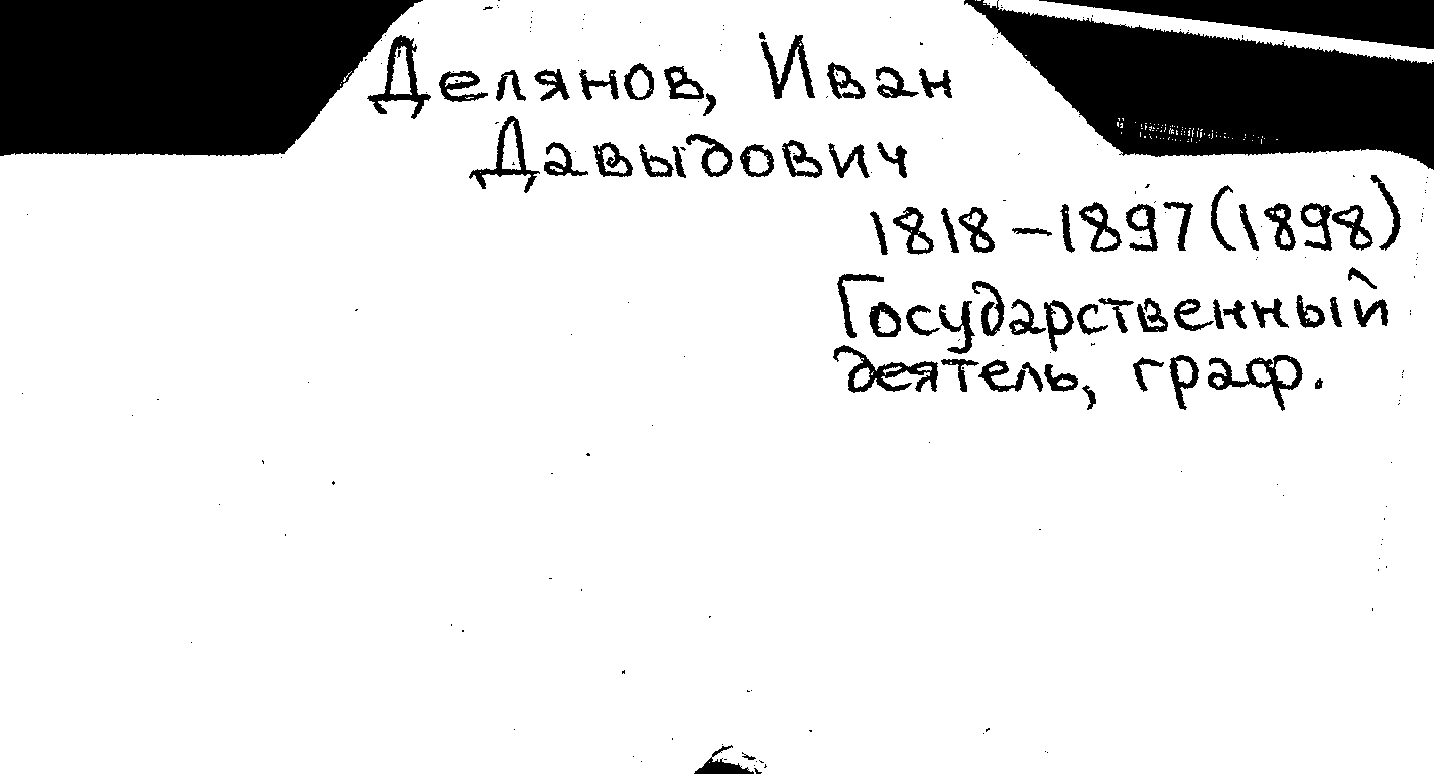 Делянов, Иван
Давыдович
1818-1897(1898)
Государственный
деятель, граф.